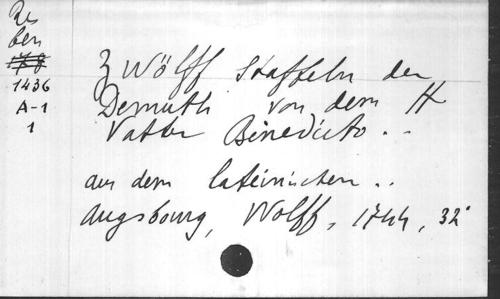 Res
ben
1436
A-1
1
Zwölff Staffeln der
Demuth von dem H
Vatter Benedicto ..
aus dem lateinischen ..
Augsbourg, Wolff, 1744, 32°